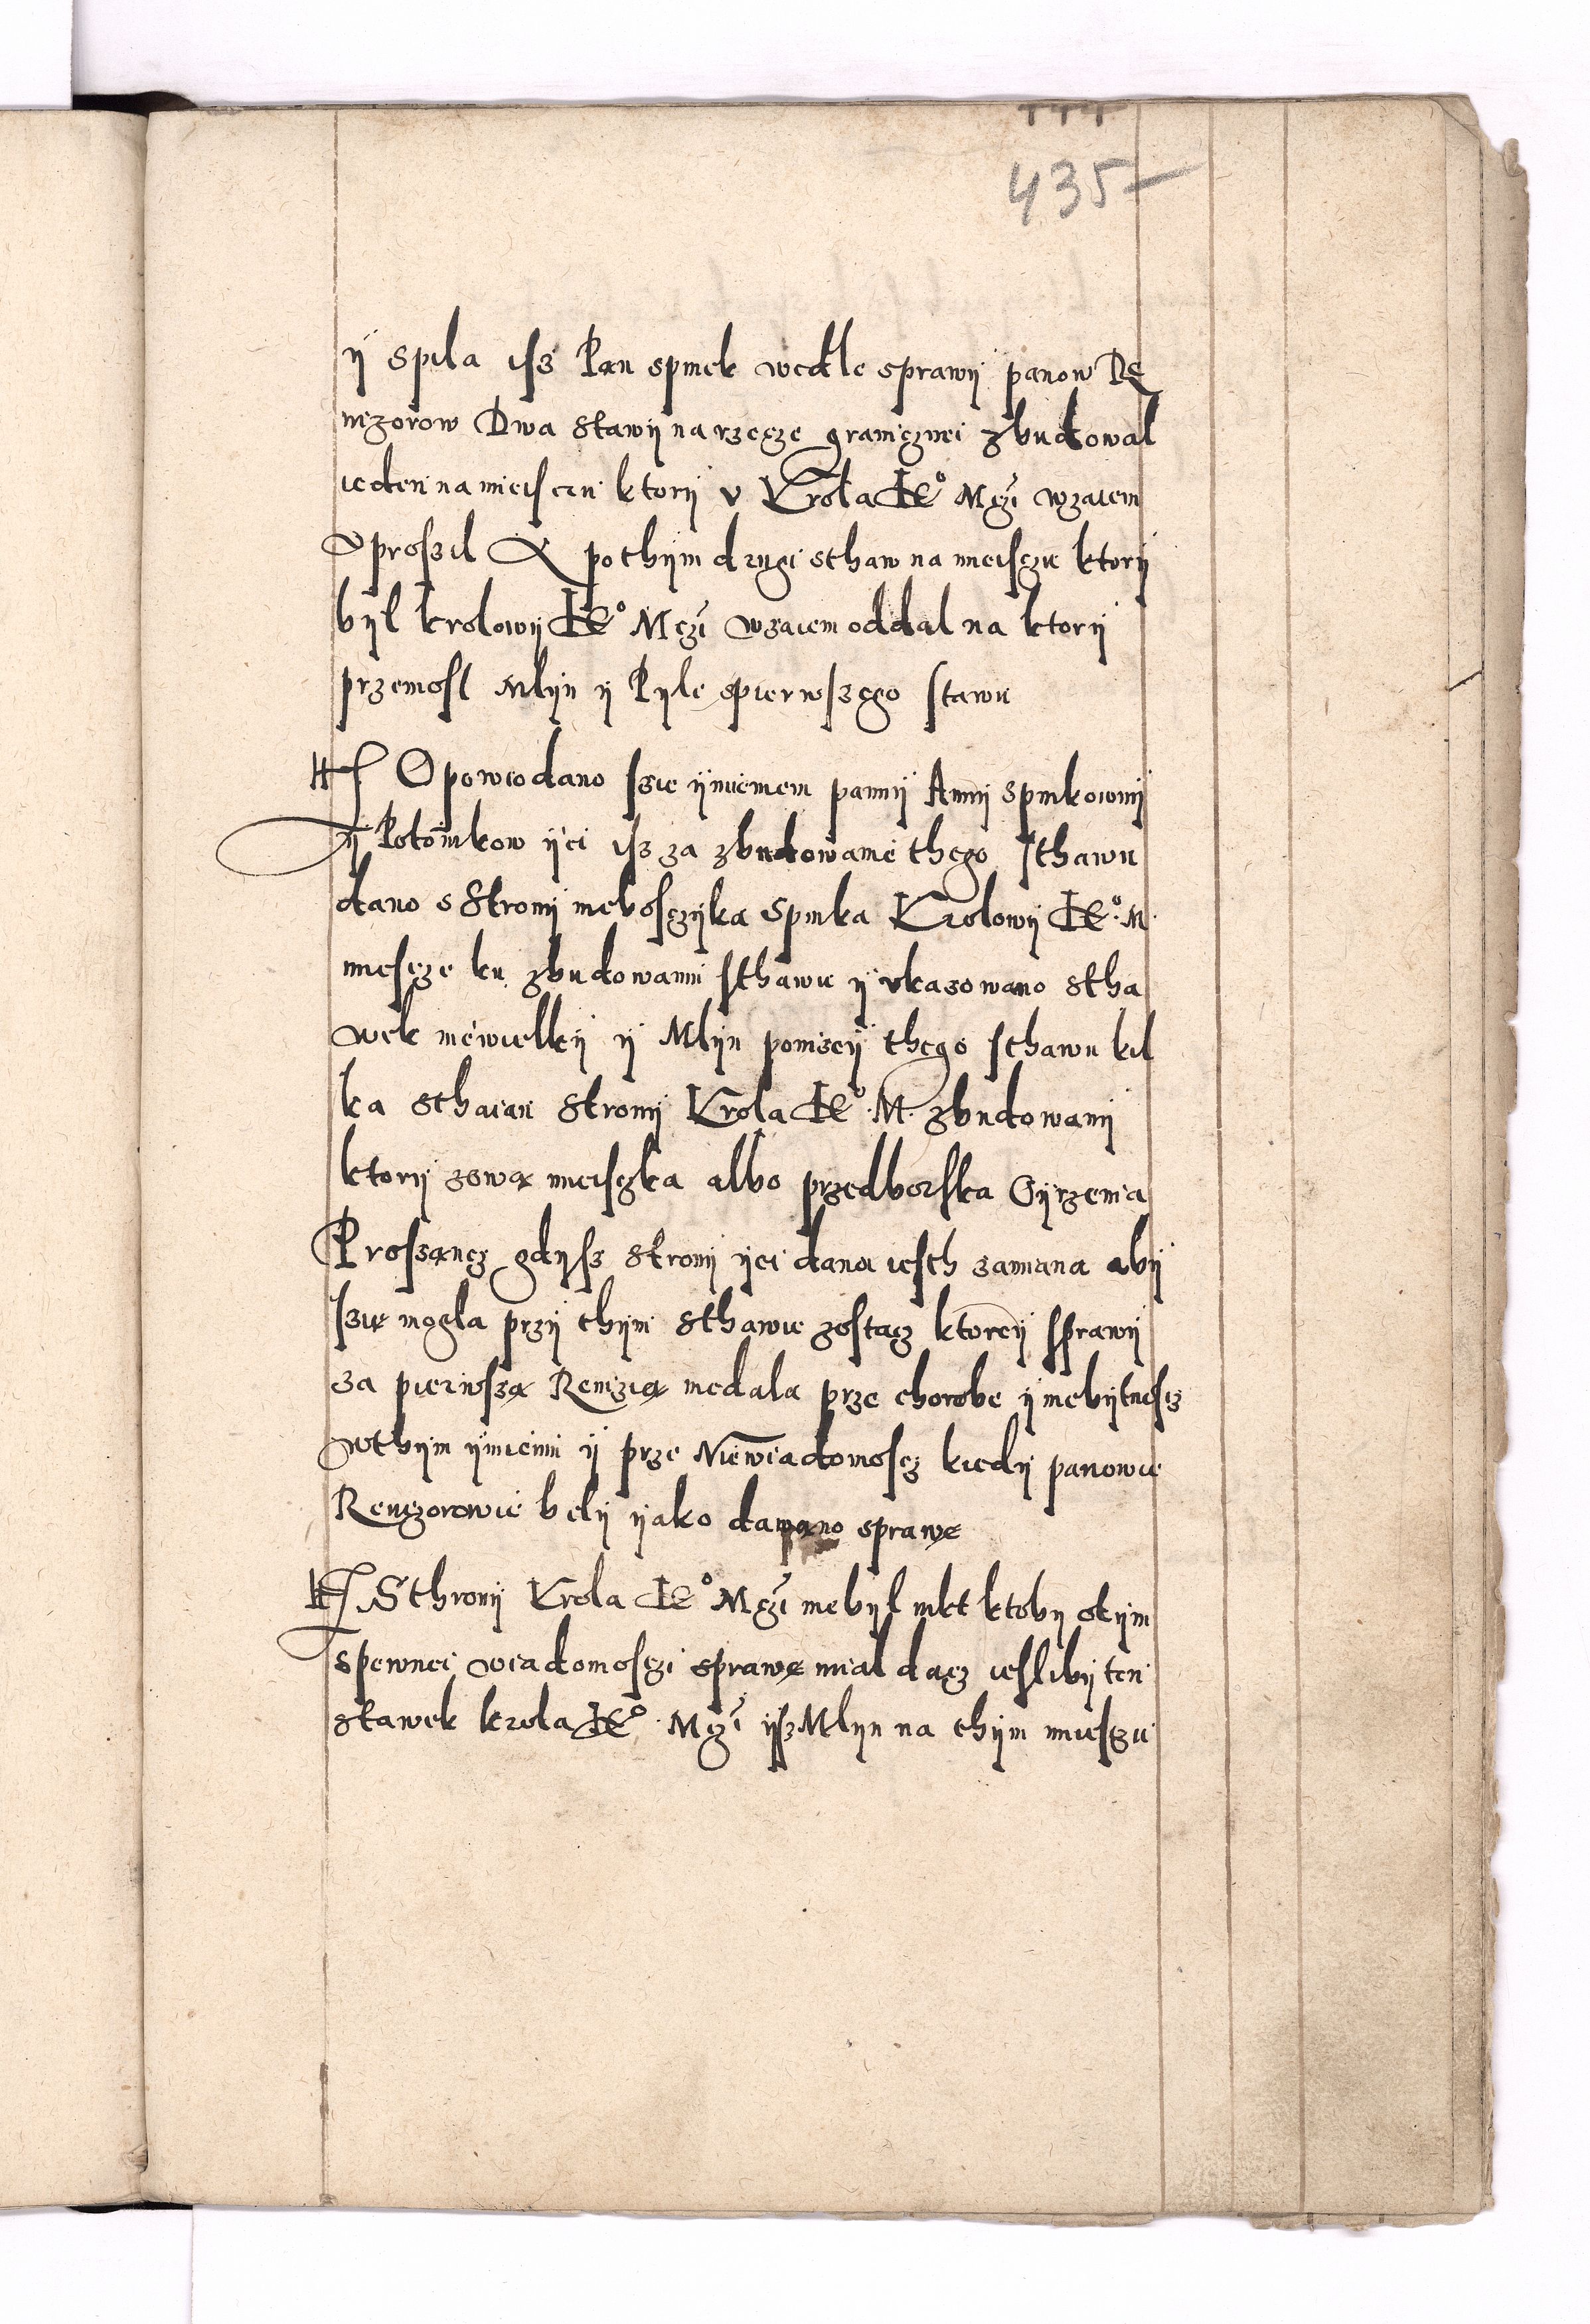 435
ÿ spila isz Pan spinek wedle sprawÿ panow Re
wizorow Dwa stawÿ na rzecze granicznei zbudowal
ieden na mieiscu ktorÿ v Krola Je° Mczi wzaiem
vproszil A pothÿm drugi sthaw na mieisczu ktorÿ
bÿl krolowÿ Je° Mczi wzaiem oddal na ktorÿ
przeniosl Mlÿn ÿ Pÿle spierwszego stawu
Opowiodano szie ÿmieniem pannÿ Annÿ spinkownÿ
ÿ Potomkow ÿei isz za zbudowanie thego sthawu
dano s Stronÿ nieboszczÿka Spinka Krolowÿ Je° M.
miescze ku zbudowaniu sthawu ÿ vkazowano stha
wek niewielkÿ ÿ Mlÿn ponizeÿ thego sthawu kil
ka sthaian stronÿ Krola Je° M. zbudowanÿ
ktorÿ zowa mieisczka albo przedborska Oÿrzenia
Proszancz gdÿsz stronÿ ÿei dana iesth zamiana abÿ
szie mogla przÿ thÿm sthawie zostacz ktoreÿ sprawÿ
za pierwsza Rewizia niedala prze chorobe ÿ niebÿtnoscz
wthÿm ÿmieniu ÿ prze Niewiadomoscz kiedÿ panowie
Rewizorowie belÿ ÿ iako dawano sprawe
Sthronÿ Krola Je° Mczi niebÿl nikt ktobÿ otÿm
spewnei wiadomosczi sprawe mial dacz ieslibÿ ten
stawek krola Je° Mczi ÿsz Mlÿn na thÿm miesczu